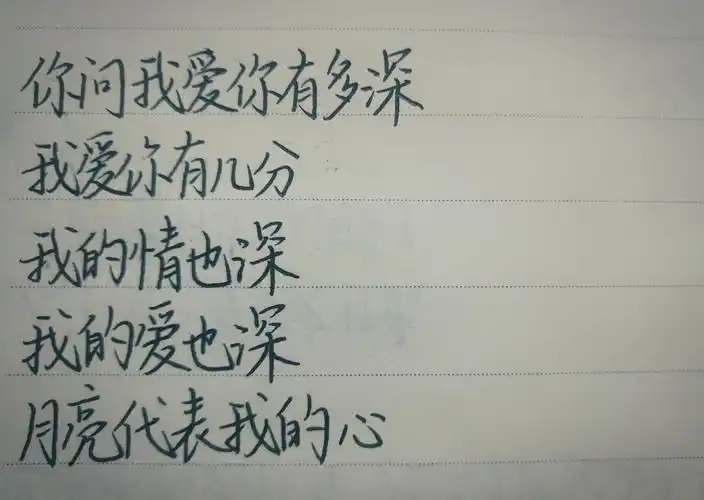 你问我爱你有多深
我爱你有几分
我的情也深
我的爱也深
月亮代表我的心